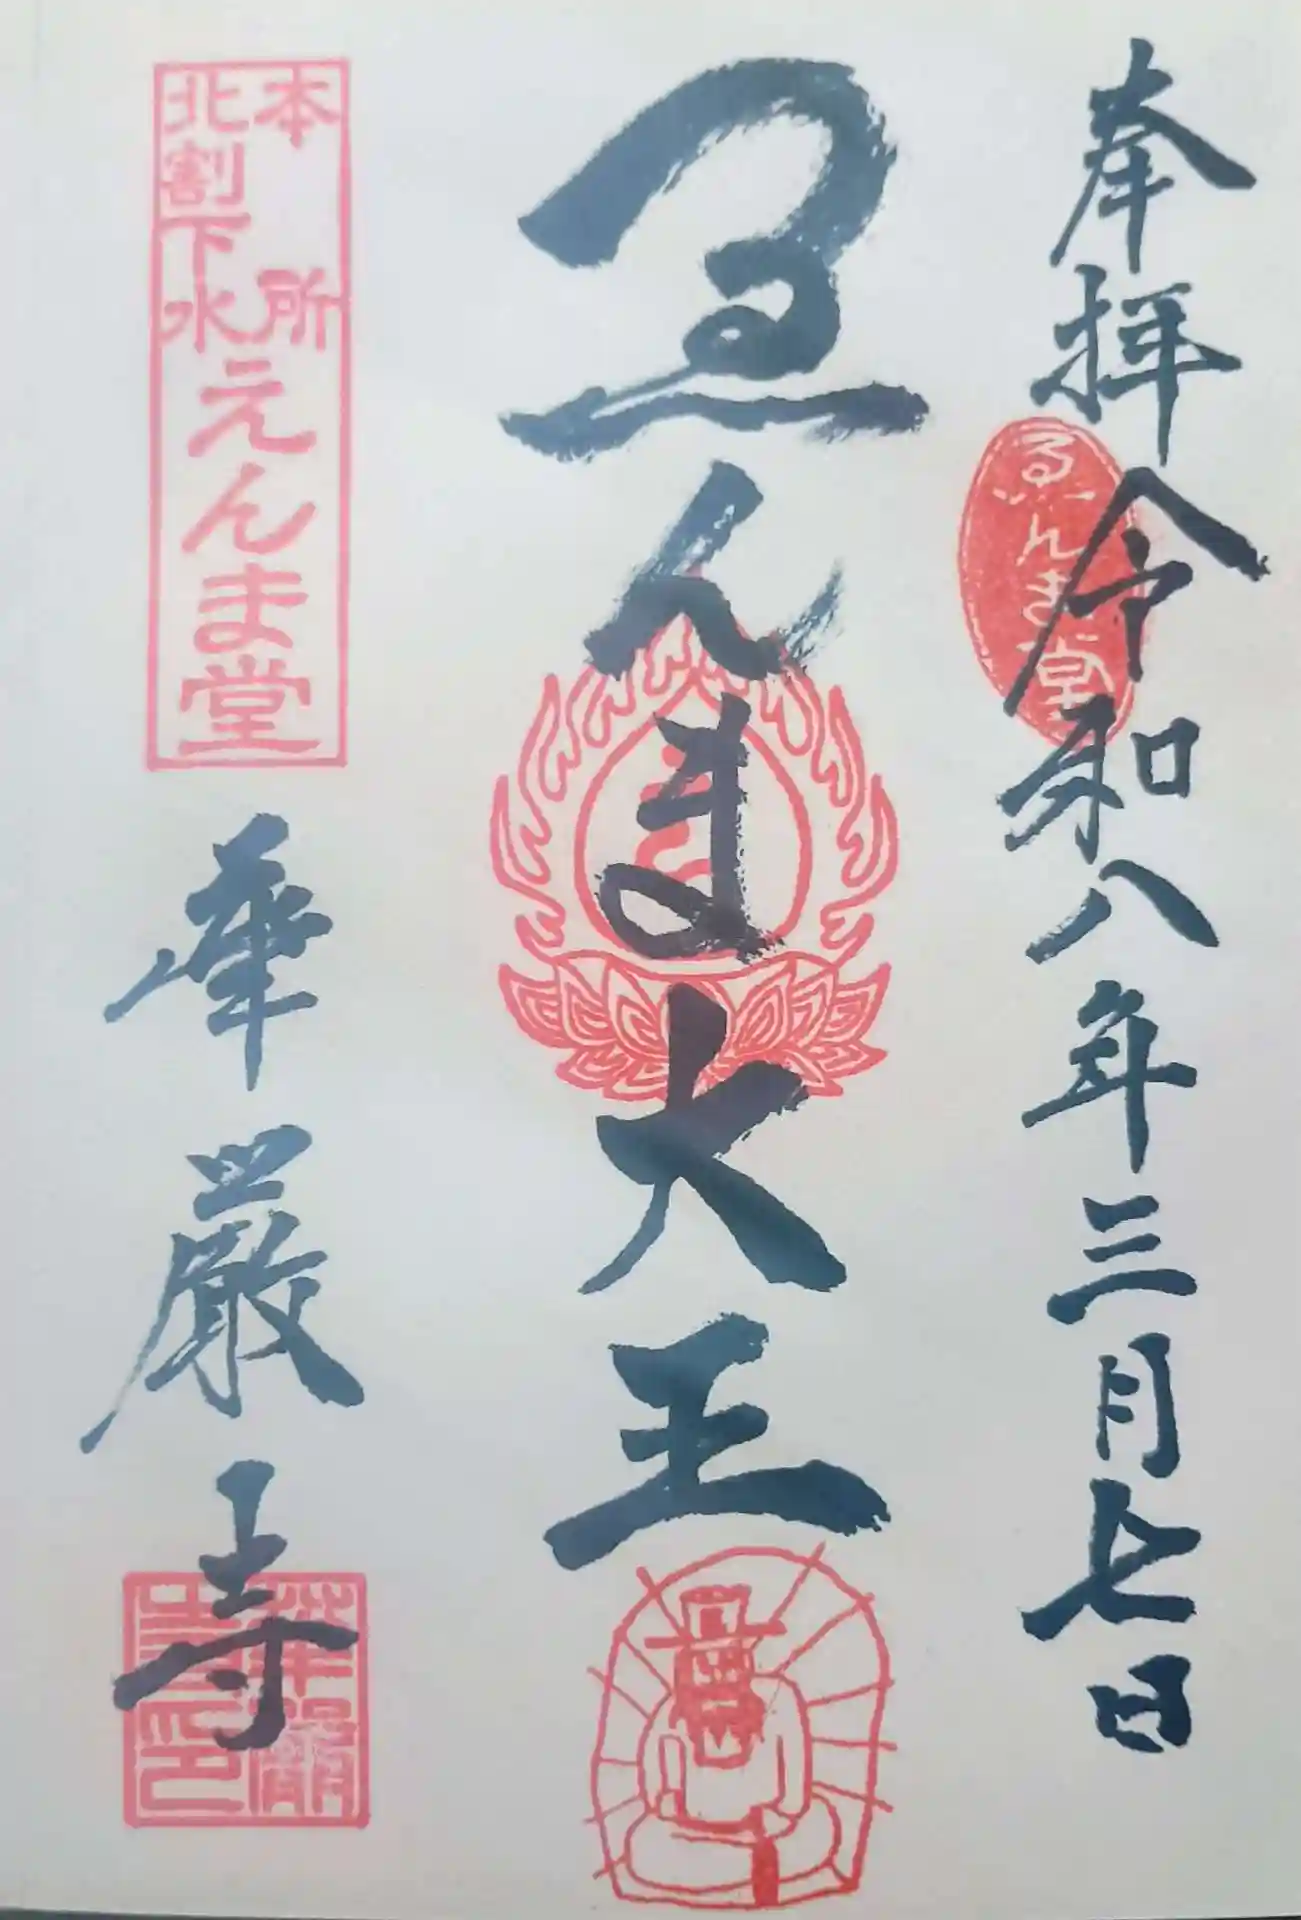 奉拝 令和八年三月七日
ゑんま堂
ゑんま大王
本所
北割下水
えんま堂
華嚴寺
華嚴
寺印